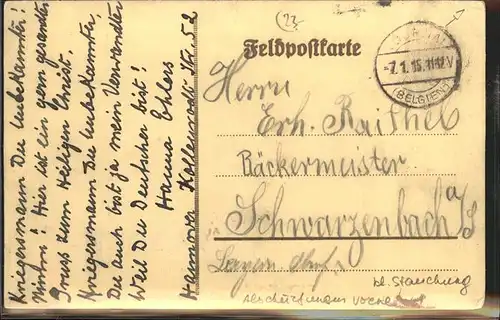 Kriegersmann Du Unbekannter!
Nimm! Hier ist ein gern gesandter
Gruss zum Heiligen Christ.
Kriegersmann Du Unbekannter
Du auch bist ja mein Verwandter
Weil Du Deutscher bist!
Hanna Ehlers
Hannover Str. 52
23
Feldpostkarte
-7.1.15. 11-12 V
(BELGIEN)
Herrn
Erh. Raithel
Bäckermeister
Schwarzenbach a/S
Bayern
kl. Stauchung
Abschürfungen vorne